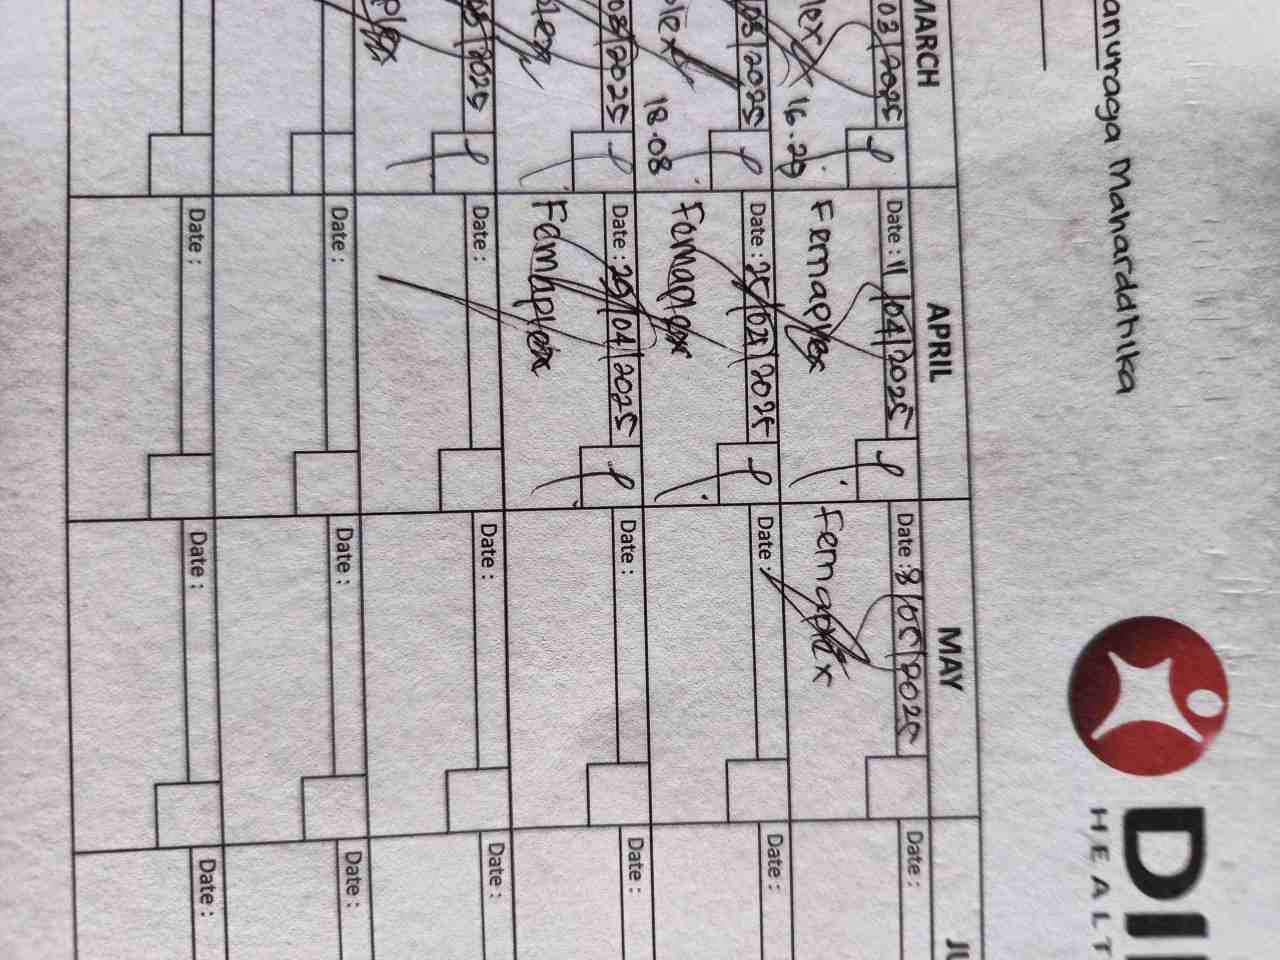 anuraga Maharddhika
DI
HEALT
MARCH
APRIL
MAY
JU
03/2025
lex
16.29
03/2025
plex
18.08
03/2025
plex
03/2025
plex
Date : 11/04/2025
Femaplex
Date : 25/04/2025
Femaplex
Date : 29/04/2025
Femaplex
Date :
Date :
Date :
Date : 8/05/2025
Femaplex
Date :
Date :
Date :
Date :
Date :
Date :
Date :
Date :
Date :
Date :
Date :